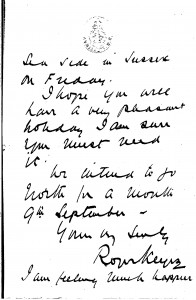 Sea side in Sussex
on Friday.
I hope you will
have a very pleasant
holiday I am sure
you must need
it.
We intend to go
North for a month
9th September –
Yours very sincly
Roger Keyes
I am feeling much happier